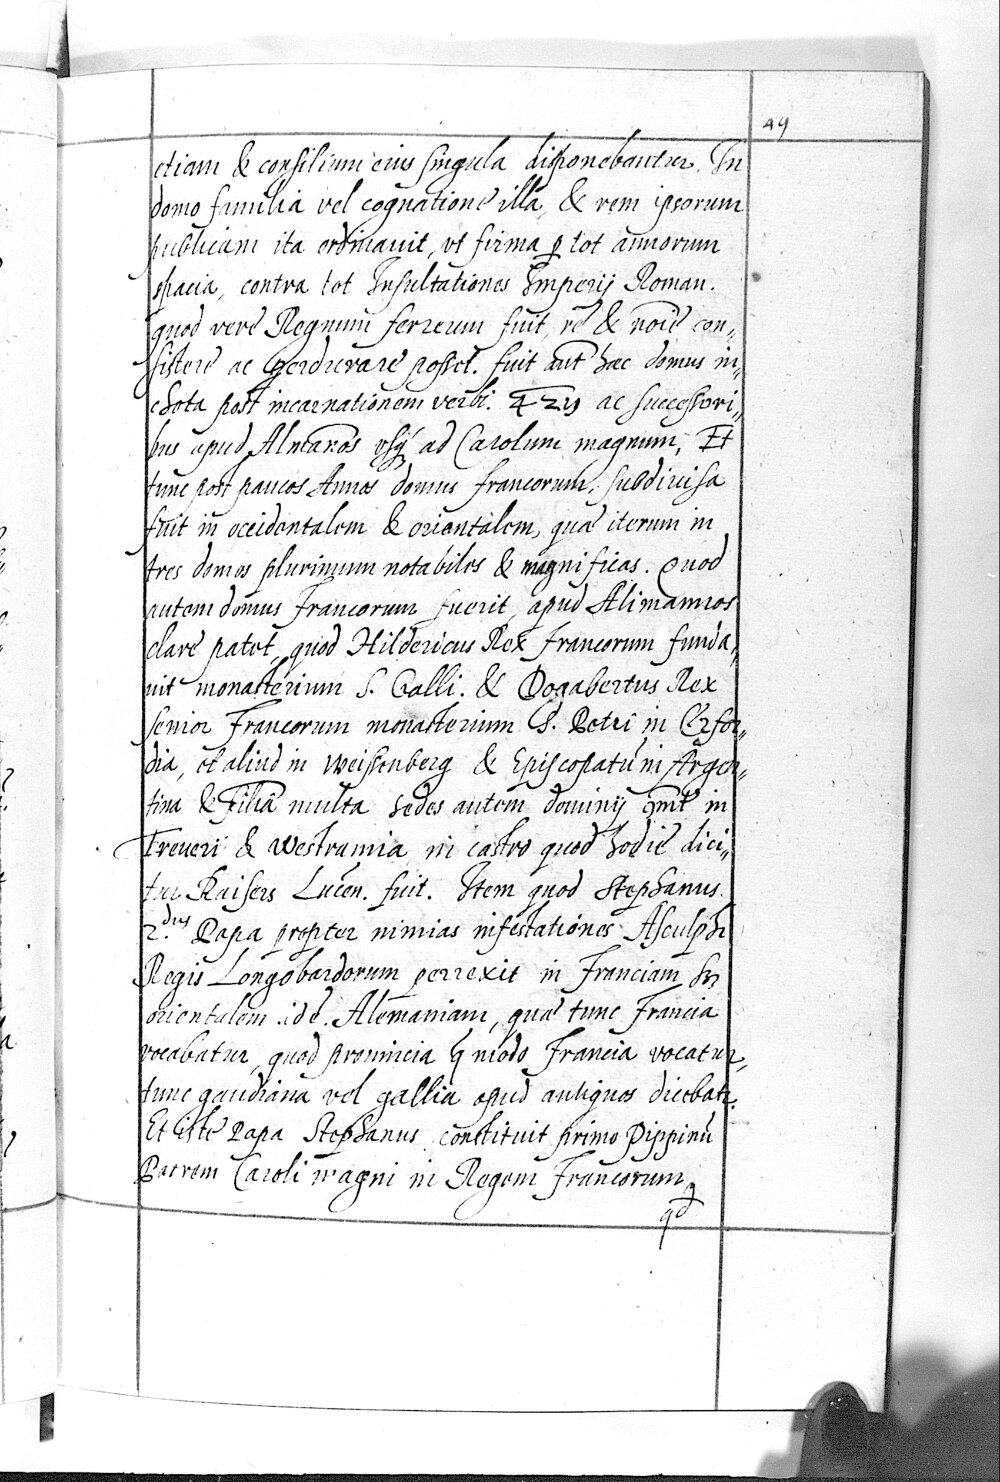 49
etiam & consilium eius singula disponebantur. In
domo familia vel cognatione illa, & rem ipsorum
publicam ita ordinauit, vt firma p tot annorum
spacia, contra tot Insultationes Imperij Roman.
quod vere Regnum ferreum fuit, re & noie con„
sistere ac perdurare posset. fuit aut hac domus in„
chota post incarnationem verbi. 429 ac successori„
bus apud Almanos vsq ad Carolum magnum, Et
tunc post paucos Annos domus francorum, subdiuisa
fuit in occidentalem & orientalem, qua iterum in
tres domos plurimum notabiles & magnificas. Quod
autem domus Francorum fuerit, apud Alimannos
clare patet, quod Hildericus Rex Francorum funda„
uit monasterium S. Galli. & Dogabertus Rex
senior Francorum monasterium S. Petri in Erfor„
dia, et aliud in Weissenberg & Episcopatu in Argen„
tina & multa sedes autem dominij in
Treueri & Westramia in castro quod hodie dici„
tur Kaisers Lucen. fuit. Item quod Stephanus
2.dus Papa propter nimias infestationes Asculphi
Regis Longobardorum perrexit in Franciam
orientalem .i.d e. Alemaniam, qua tunc Francia
vocabatur, quod prouincia q modo Francia vocatur,
tunc gaudiana vel gallia apud antiquos dicebatr.
Et iste Papa Stephanus constituit primo Pippinu
Patrem Caroli magni in Regem Francorum,
qd